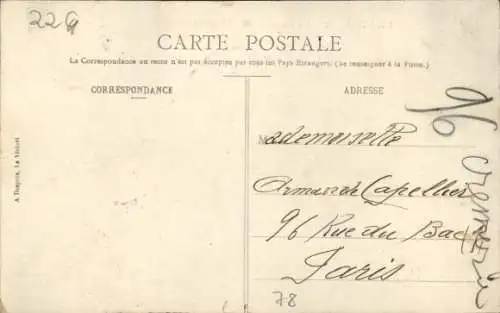 22G
CARTE POSTALE
La Correspondance au recto n'est pas acceptée par tous les Pays Etrangers. (Se renseigner à la Poste.)
CORRESPONDANCE
ADRESSE
Mademoiselle
Capellier
96 Rue du Bac
Paris
78
96